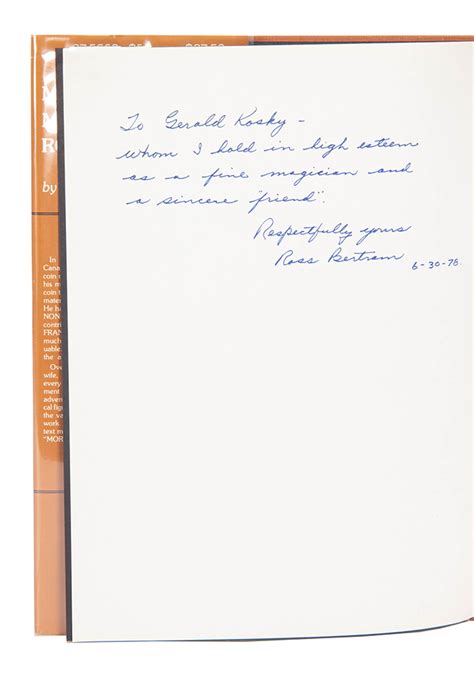 To Gerald Kosky -
whom I hold in high esteem
as a fine magician and
a sincere "friend".
Respectfully yours
Ross Bertram
6-30-78.
by
In
Cana
coin
his m
coin t
mater
He ha
NON
contri
FRAN
much
uable
the a
Ove
wife,
every
ment
adver
cal fig
the va
work.
text m
"MOR